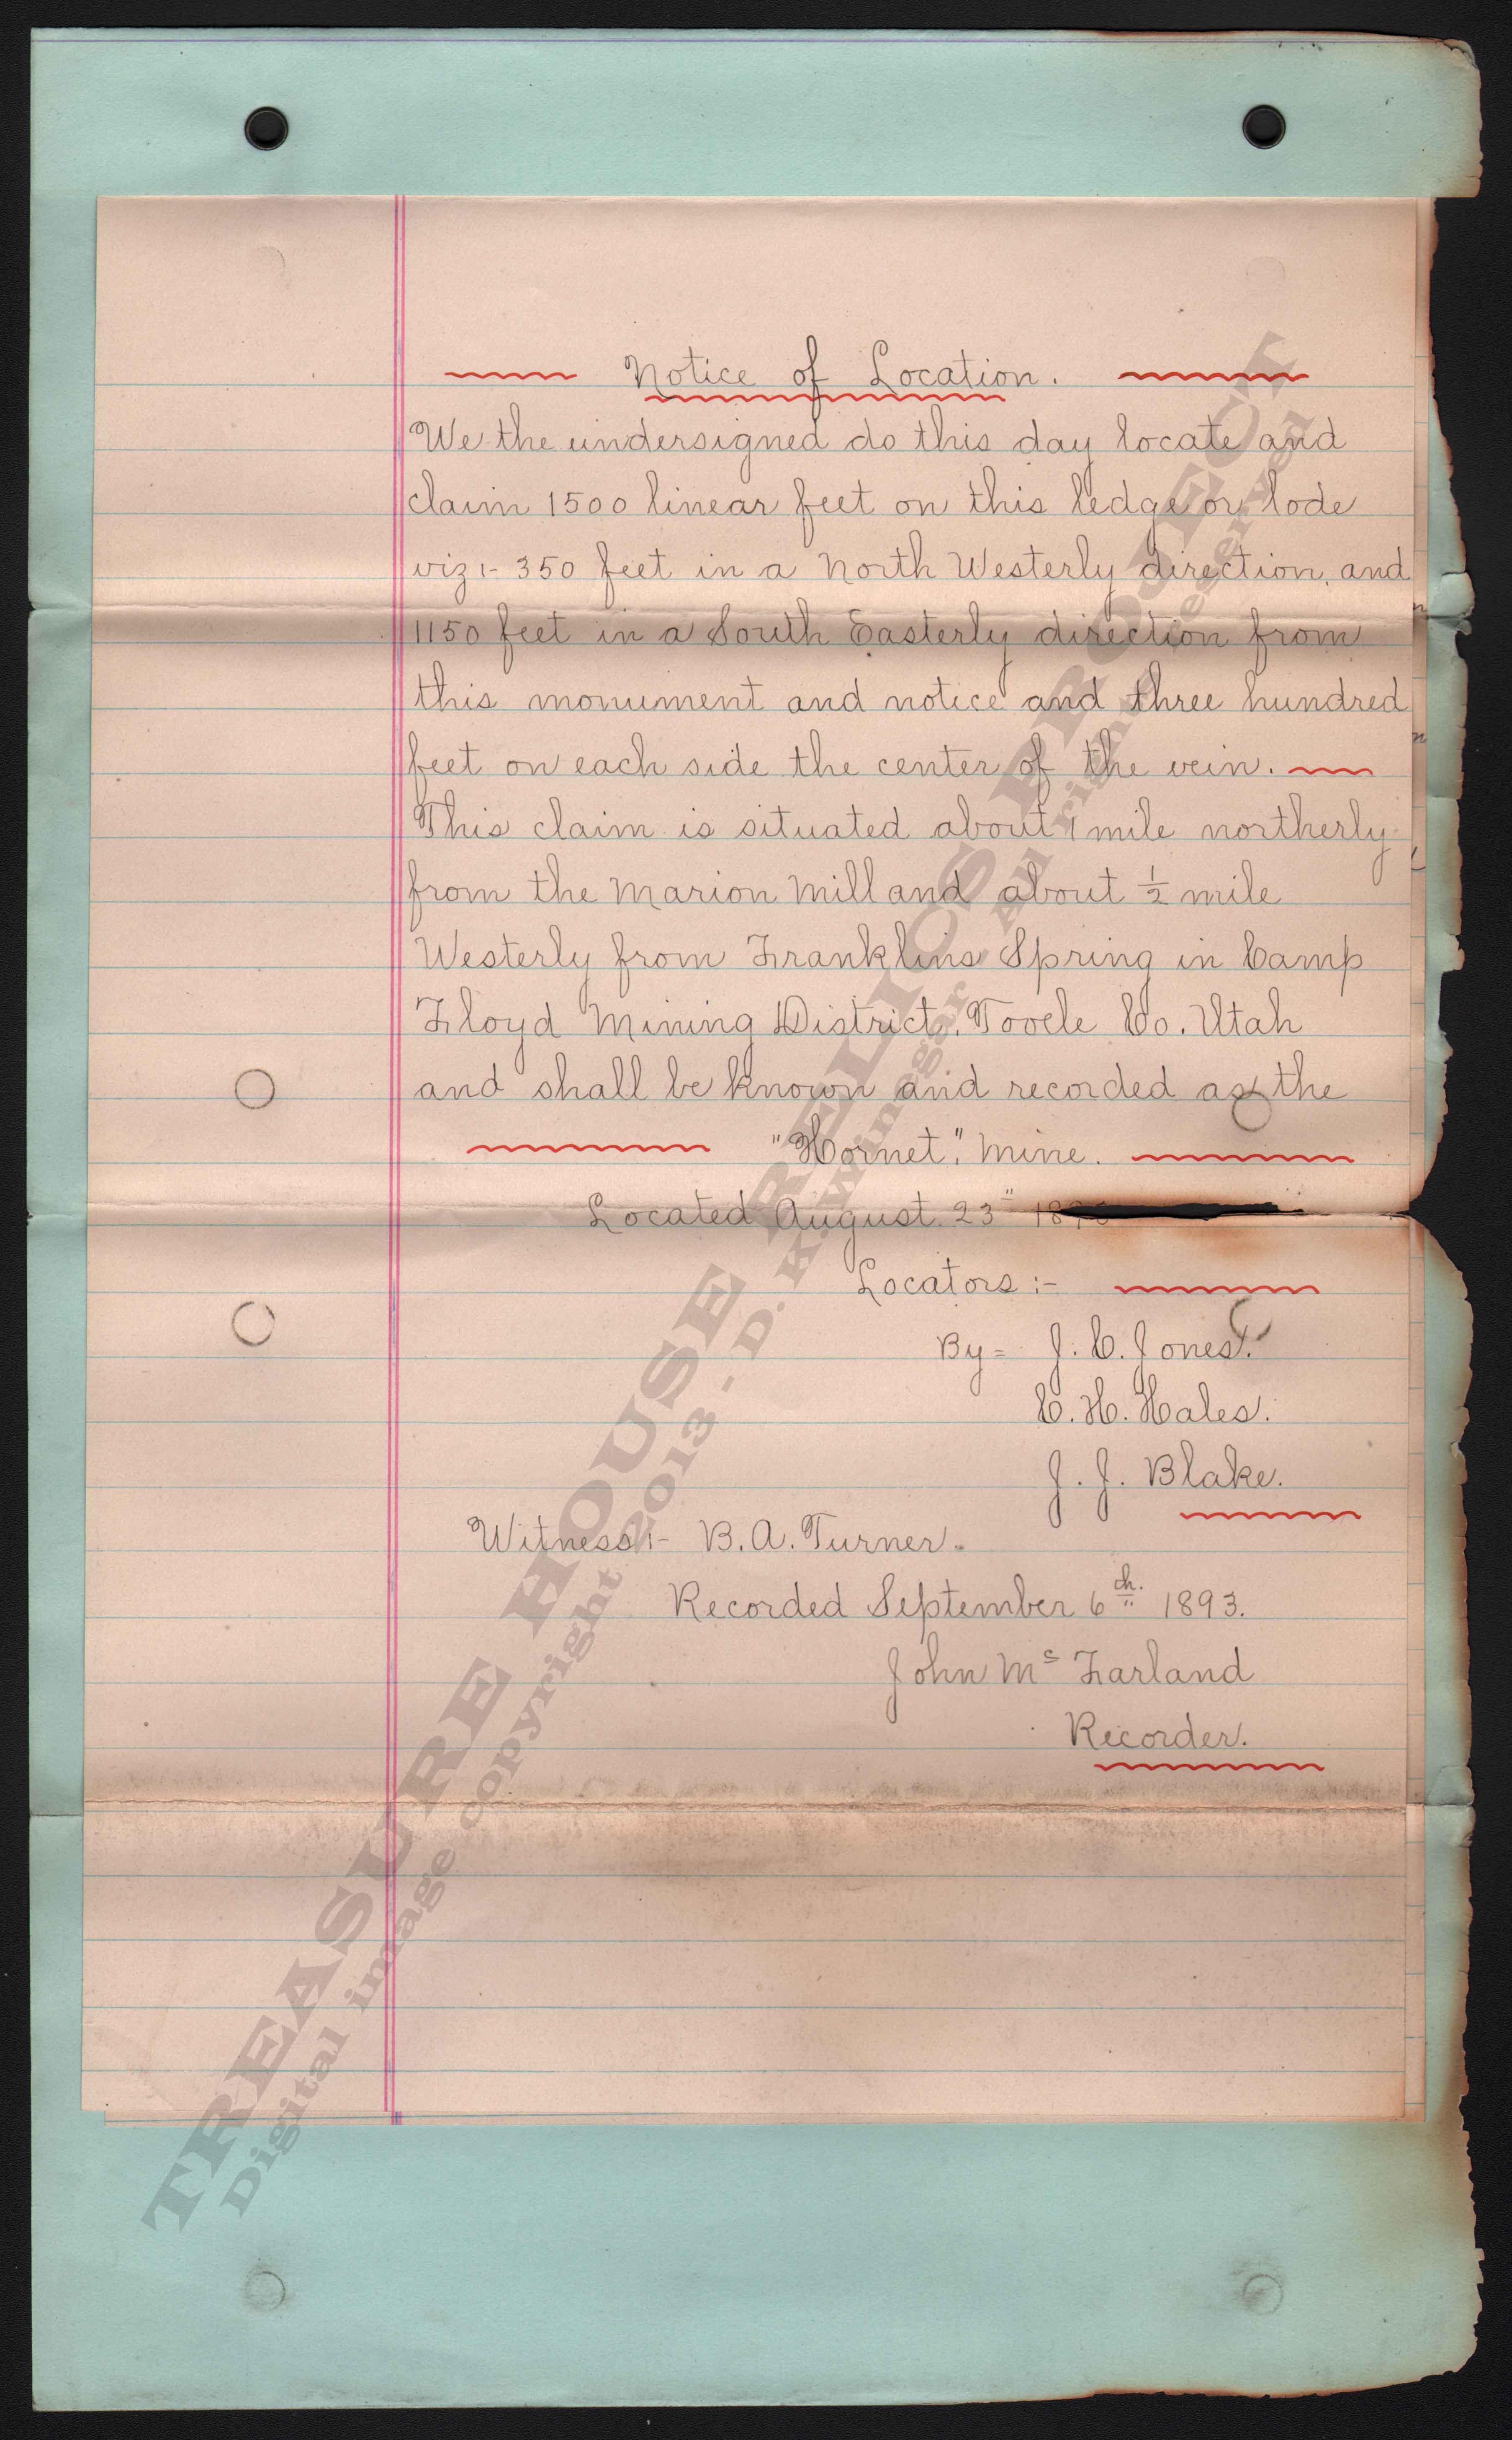 Notice of Location.
We the undersigned do this day locate and
claim 1500 linear feet on this ledge or lode
viz:- 350 feet in a North Westerly direction, and
1150 feet in a South Easterly direction from
this monument and notice and three hundred
feet on each side the center of the vein.
This claim is situated about 1 mile northerly
from the Marion Mill and about 1/2 mile
Westerly from Franklins Spring in Camp
Floyd Mining District, Tooele Co. Utah
and shall be known and recorded as the
"Hornet", Mine.
Located August 23"
Locators:-
By = J. C. Jones.
C. H. Hales.
J. J. Blake.
Witness:- B. A. Turner.
Recorded September 6th. 1893.
John Mc Farland
Recorder.
TREASURE HOUSE RELICS PROJECT
Digital image copyright 2013 - D. K. Winegar All rights reserved